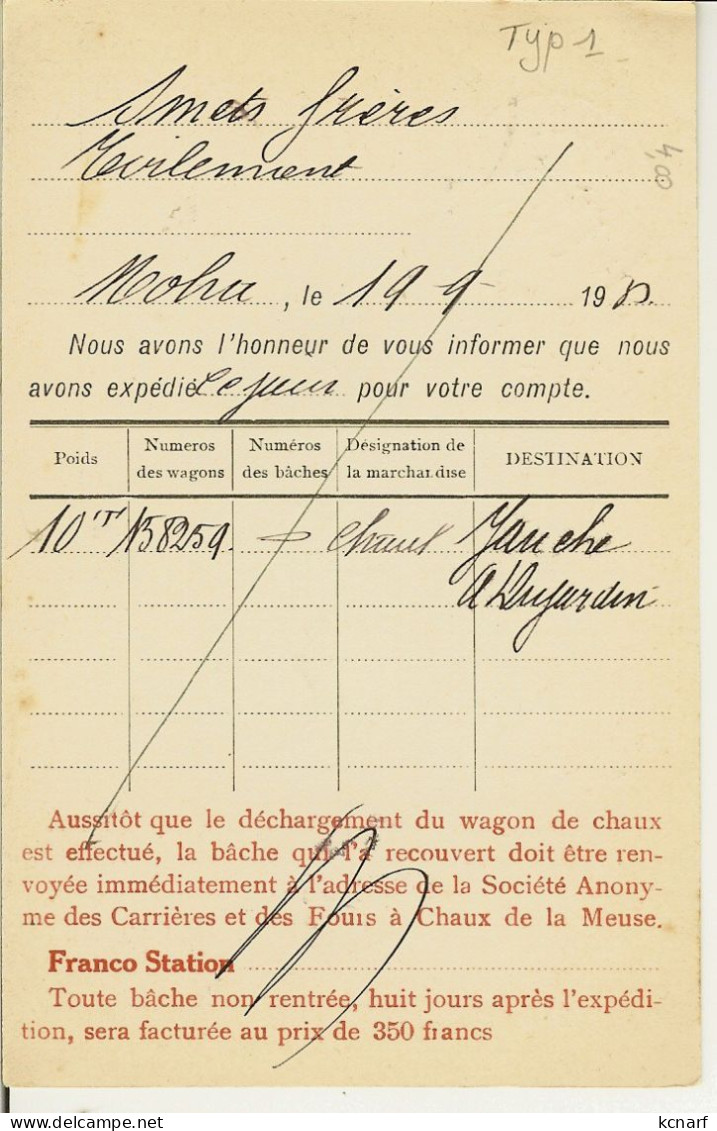 Typ 1
Smets frères
Tirlemont
4,00
Moha, le 19 9 19
Nous avons l'honneur de vous informer que nous
avons expédié ce jour pour votre compte.
Poids Numeros des wagons Numéros des bâches Désignation de la marchandise DESTINATION
10 TT 158259. chaux Jauche
A Dujardin
Aussitôt que le déchargement du wagon de chaux
est effectué, la bâche qui l'a recouvert doit être ren-
voyée immédiatement à l'adresse de la Société Anony-
me des Carrières et des Fours à Chaux de la Meuse.
Franco Station
Toute bâche non rentrée, huit jours après l'expédi-
tion, sera facturée au prix de 350 francs
kcnarf